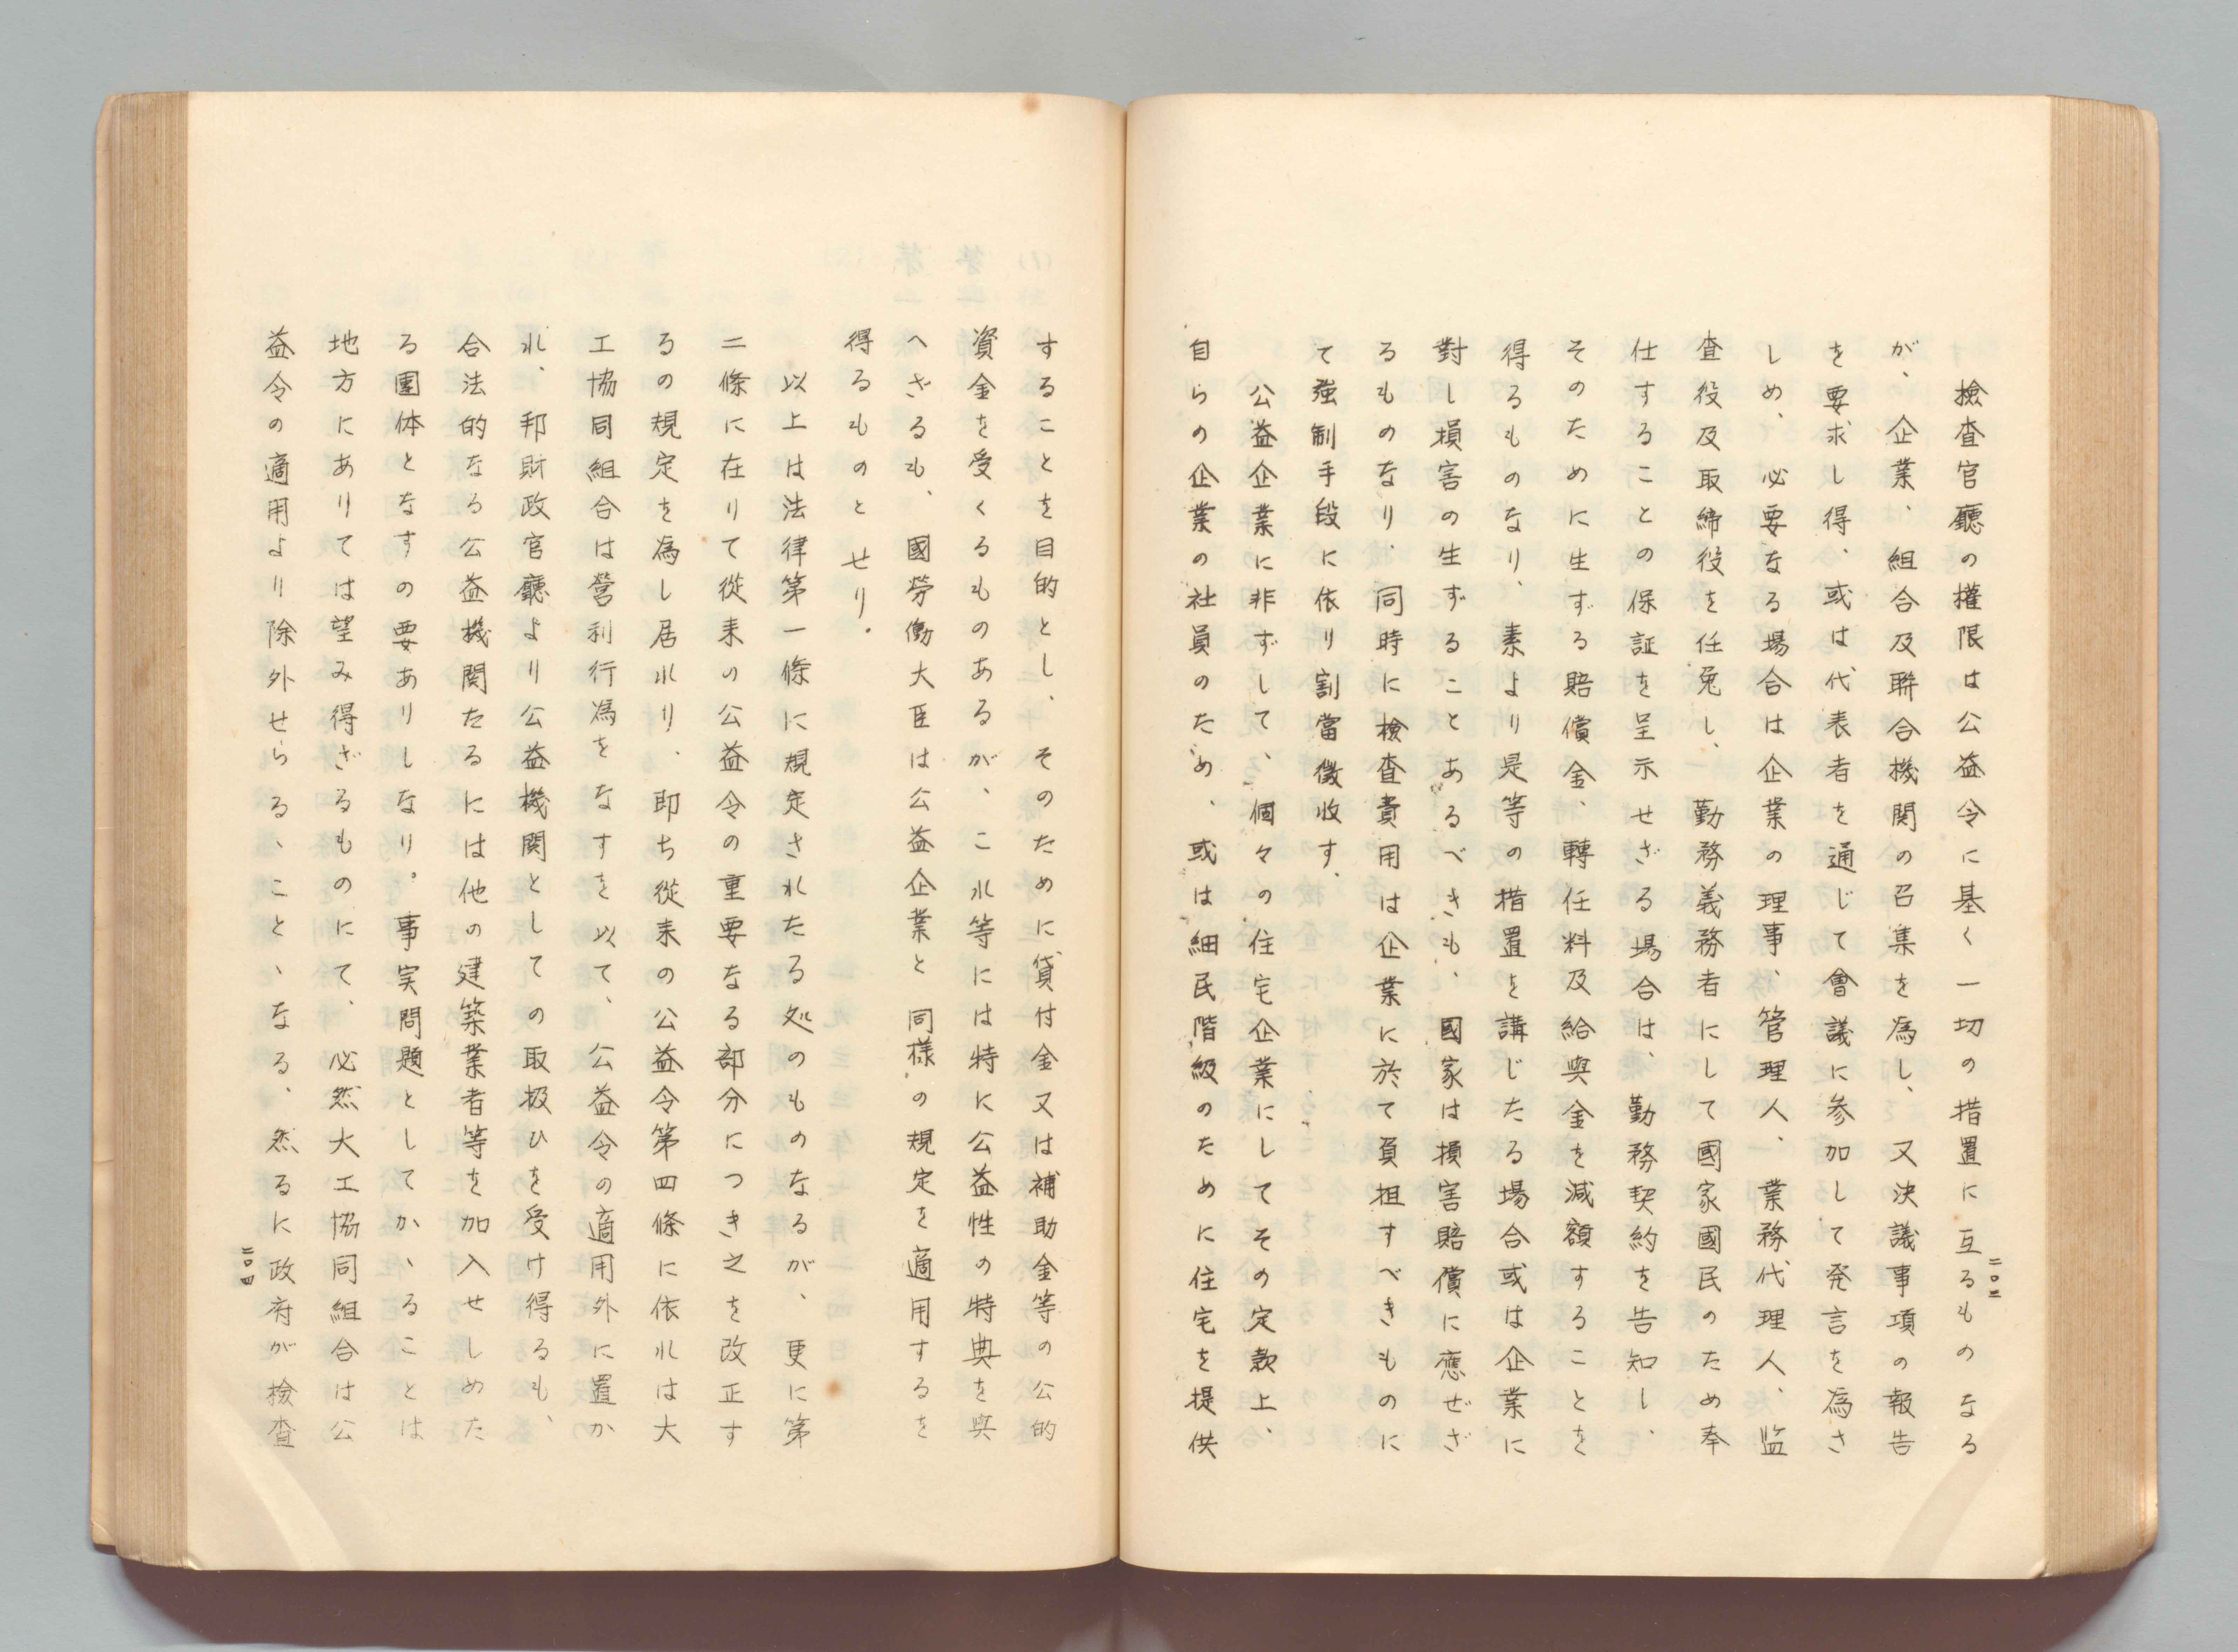 檢査官廳の權限は公益令に基く一切の措置に亙るものなる
が、企業、組合及聯合機関の召集を爲し、又決議事項の報告
を要求し得、或は代表者を通じて會議に参加して発言を爲さ
しめ、必要なる場合は企業の理事、管理人、業務代理人、監
査役及取締役を任免し、勤務義務者にして國家國民のため奉
仕することの保証を呈示せざる場合は、勤務契約を告知し、
そのために生ずる賠償金、轉任料及給與金を減額することを
得るものなり、素より是等の措置を講じたる場合或は企業に
對し損害の生ずることあるべきも、國家は損害賠償に應ぜざ
るものなり、同時に檢査費用は企業に於て負担すべきものに
て強制手段に依り割當徴收す、
公益企業に非ずして、個々の住宅企業にしてその定款上、
自らの企業の社員のため、或は細民階級のために住宅を提供
二〇三
することを目的とし、そのために貸付金又は補助金等の公的
資金を受くるものあるが、これ等には特に公益性の特典を與
へざるも、國勞働大臣は公益企業と同様の規定を適用するを
得るものとせり。
以上は法律第一條に規定されたる処のものなるが、更に第
二條に在りて從来の公益令の重要なる部分につき之を改正す
るの規定を爲し居れり、即ち從来の公益令第四條に依れは大
工協同組合は營利行爲をなすを以て、公益令の適用外に置か
れ、邦財政官廳より公益機関としての取扱ひを受け得るも、
合法的なる公益機関たるには他の建築業者等を加入せしめた
る團体となすの要ありしなり。事実問題としてかゝることは
地方にありては望み得ざるものにて、必然大工協同組合は公
益令の適用より除外せらるゝことゝなる、然るに政府が檢査
二〇四